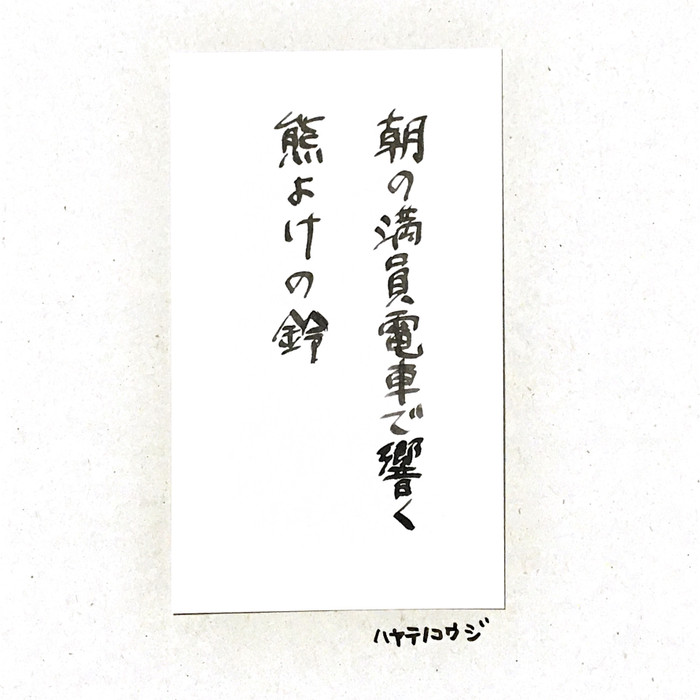 朝の満員電車で響く
熊よけの鈴
ハヤテノコウジ